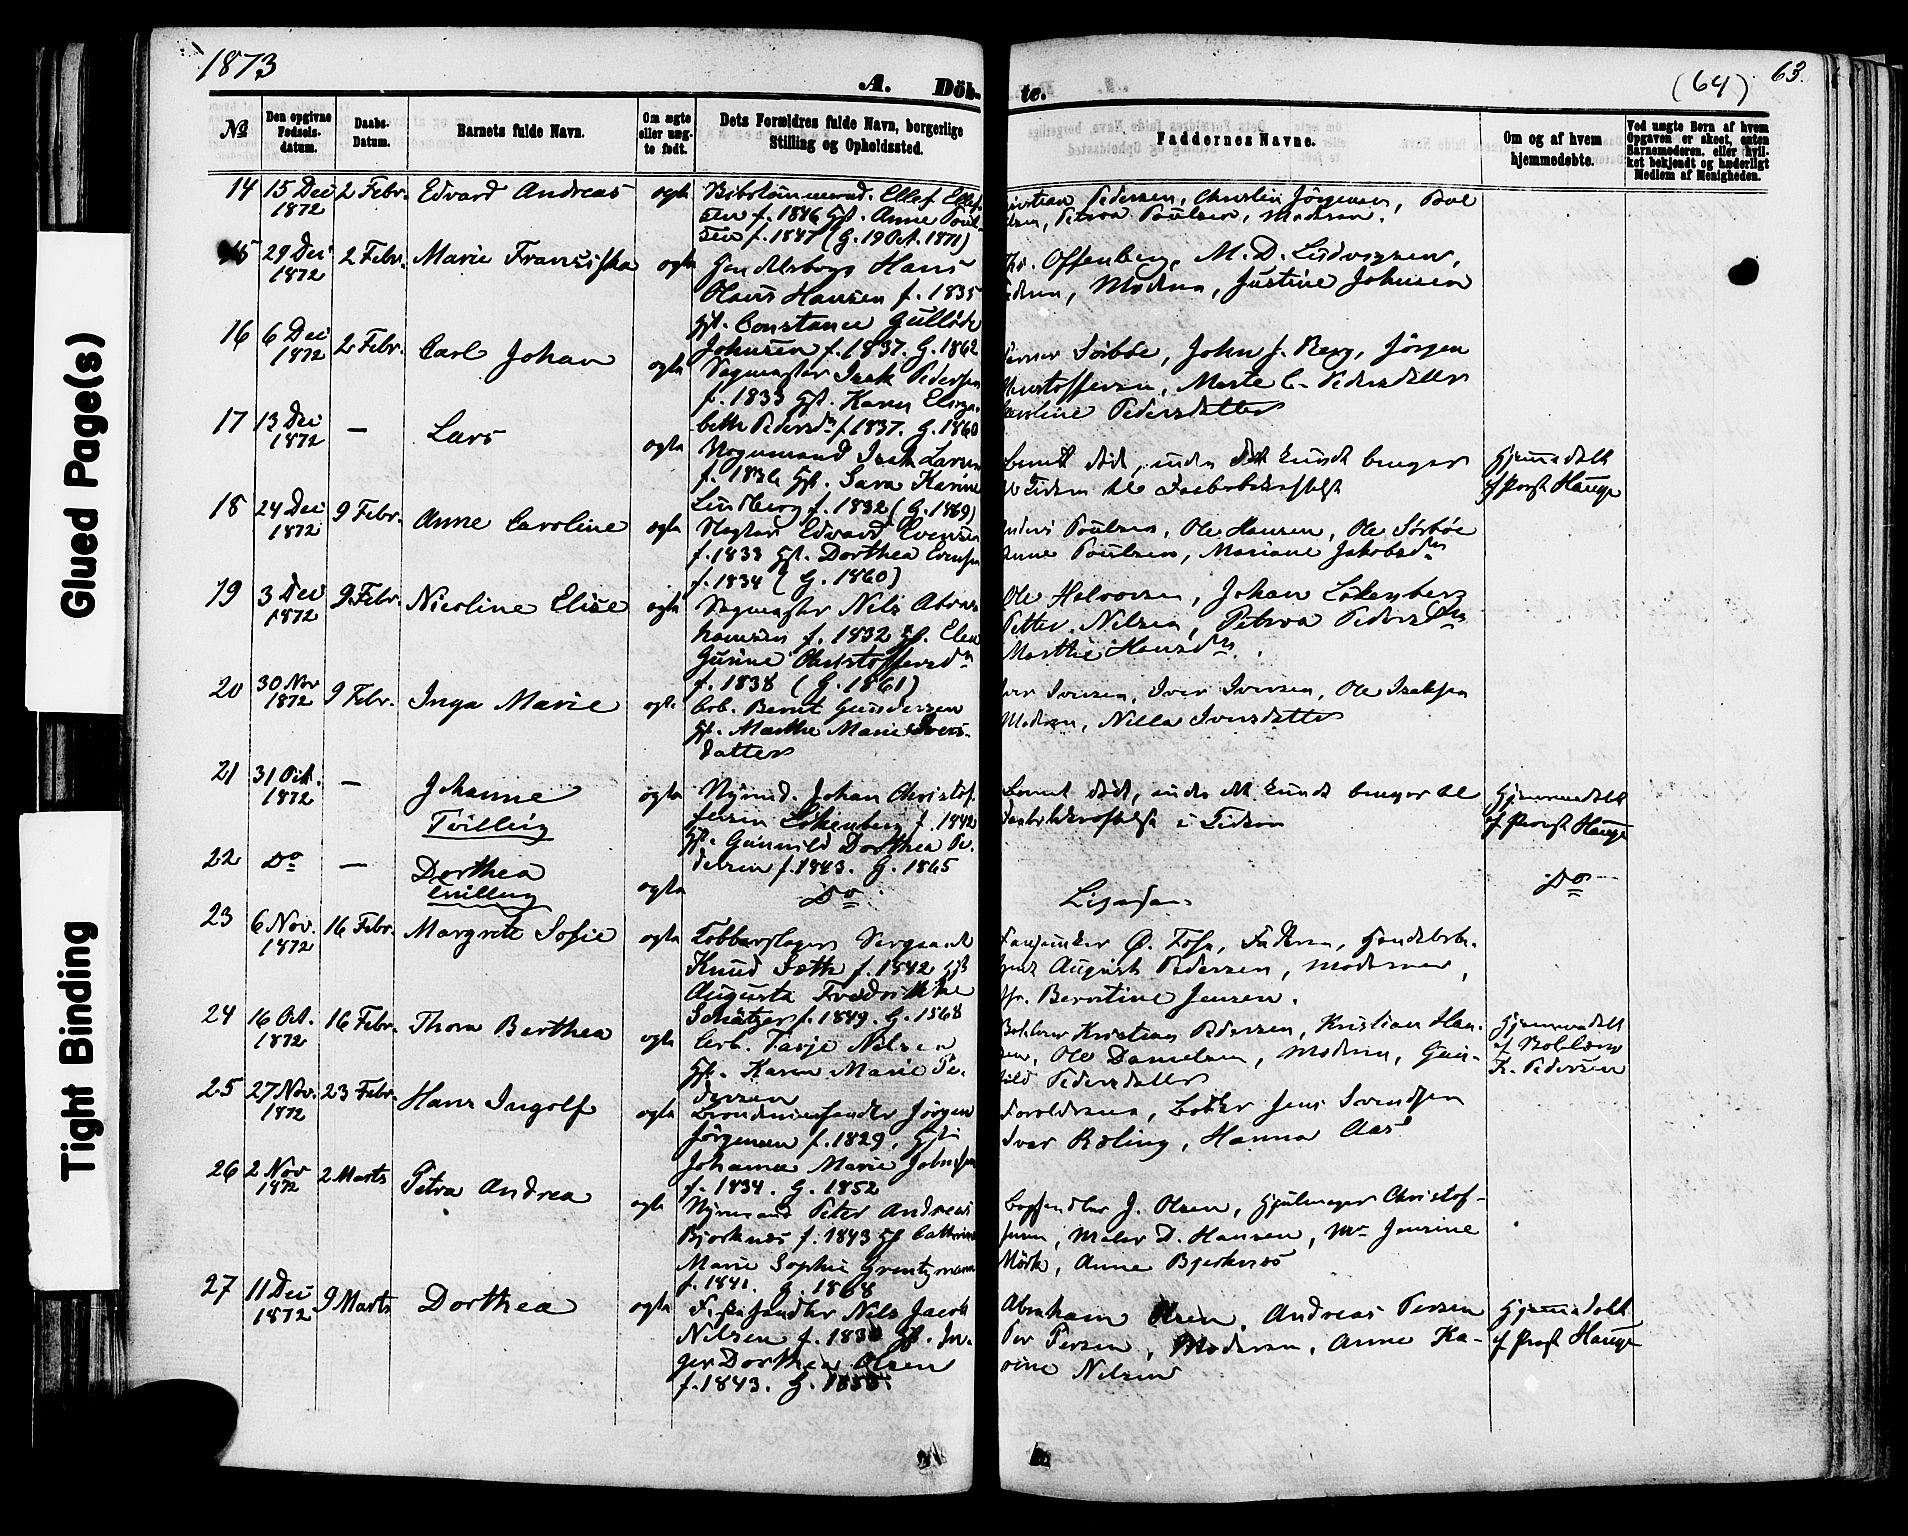 1873
A. Döb-
te.
(64)
63.
Glued Page(s)
Tight Binding
No
Den opgivne Fødsels-datum.
Daabs-Datum.
Barnets fulde Navn.
Om ægte eller uæg-te født.
Dets Forældres fulde Navn, borgerlige
Stilling og Opholdssted.
Faddernes Navne.
Om og af hvem
hjemmedøbte.
Ved uægte Børn af hvem
Opgaven er skeet, enten
Barnemoderen, eller hvil-
ket bekjendt og hæderligt
Medlem af Menigheden.
14 15 Dec 1872 2 Febr. Edvard Andreas ægte
Ellef Ellef-
sen f. 1846 Hst. Anne Poul-
sen f. 1847 (G. 19 Oct. 1871)
Pedersen, Christin Jørgensen,
Petrea Poulsen, Moderen.
15 29 Dec 1872 2 Febr. Marie Fransiska ægte
Handelsborgr Hans
Olaus Hansen f. 1835
Hst. Constance Gulløde
Johnsen f. 1837. G. 1862
Offenberg, M. D. Ludvigsen,
Moderen, Justine Johnsen
16 6 Dec 1872 2 Febr. Carl Johan ægte
Sagmester Isak Pedersen
f. 1833 Hst. Karen Elisa-
beth Pedersdr f. 1837. G. 1860
Sørbøe, John J. Berg, Jørgen
Christoffersen, Marte C. Pedersdatter
Karoline Pedersdatter
17 13 Dec 1872 — Lars ægte
Isak Larsen
f. 1836 Hst. Sara Karine
Lindberg f. 1832 (G. 1869)
Barnet død, inden det kunde bringes
til Daabsbekræftelse
Hjemmedøbt
af Provst Hauge
18 24 Dec 1872 9 Febr. Anne Caroline ægte
Edvard Evensen
f. 1833 Hst. Dorthea Evensen
f. 1834 (G. 1860)
Anders Poulsen, Ole Hansen, Ole Sørbøe
Anne Poulsen, Mariane Jakobsdr
19 3 Dec 1872 9 Febr. Nicoline Elise ægte
Sagmester Nils Abra-
hamsen f. 1832 Hst. Elen
Gurine Christoffersdr
f. 1838 (G. 1861)
Ole Halvorsen, Johan Løkenberg
Petter Nilsen, Petrea Pedersdr
Marthe Hansdr
20 30 Nov 1872 9 Febr. Inga Marie ægte
Arb. Bernt Gundersen
Hst. Marthe Marie Ivers-
datter
Iver Iversen, Ole Isaksen
Moderen, Nilla Iversdatter
21 31 Oct. 1872 — Johanne
Tvilling ægte
Johan Christof-
fersen Løkenberg f. 1842
Hst. Gunnild Dorthea Pe-
dersen f. 1843. G. 1865
Barnet død, inden det kunde bringes til
Daabsbekræftelse i Kirken
Hjemmedøbt
af Provst Hauge
22 Do — Dorthea
Tvilling ægte
Do
Ligesaa
Do
23 6 Nov. 1872 16 Febr. Margrete Sofie ægte
Kobberslager Sergeant
Knud Sæth f. 1842 Hst
Augusta Fredrikke
Schätzer f. 1849. G. 1868
Fanejunker Faderen, Handelsbe-
August Pedersen, Moderen,
Fr. Berntine Jensen.
24 16 Oct. 1872 16 Febr. Thora Berthea ægte
Arb. Tarje Nilsen
Hst. Karen Marie Pe-
dersen
Kristian Pedersen, Kristian Han-
sen, Ole Danielsen, Moderen, Gun-
hild Pedersdatter
Hjemmedøbt
K. Pedersen
25 27 Nov. 1872 23 Febr. Hans Ingolf ægte
Brændeviinshandler Jørgen
Jørgensen f. 1829, Hst.
Johanne Marie Johnsen
f. 1834. G. 1852
Forældrene, Jens Svendsen
Iver Roling, Hanna Aas
26 2 Nov 1872 2 Marts Petra Andrea ægte
Peter Andreas
Bjerknes f. 1843 Hst Cathrine
Marie Sophie Grentzmann
f. 1841. G. 1868
J. Olsen, Hjulmager Christof-
fersen, Maler D. Hansen, Jensine
Mørk, Anne Bjerknes
27 11 Dec 1872 9 Marts Dorthea ægte
Fiskehandler Nils Jacob
Nilsen f. Hst. In-
ger Dorthea Olsen
f. 1843. G.
Abraham Olsen, Andreas Persen
Per Persen, Moderen, Anne Ka-
rine Nilsen
Hjemmedøbt
af Provst Hauge